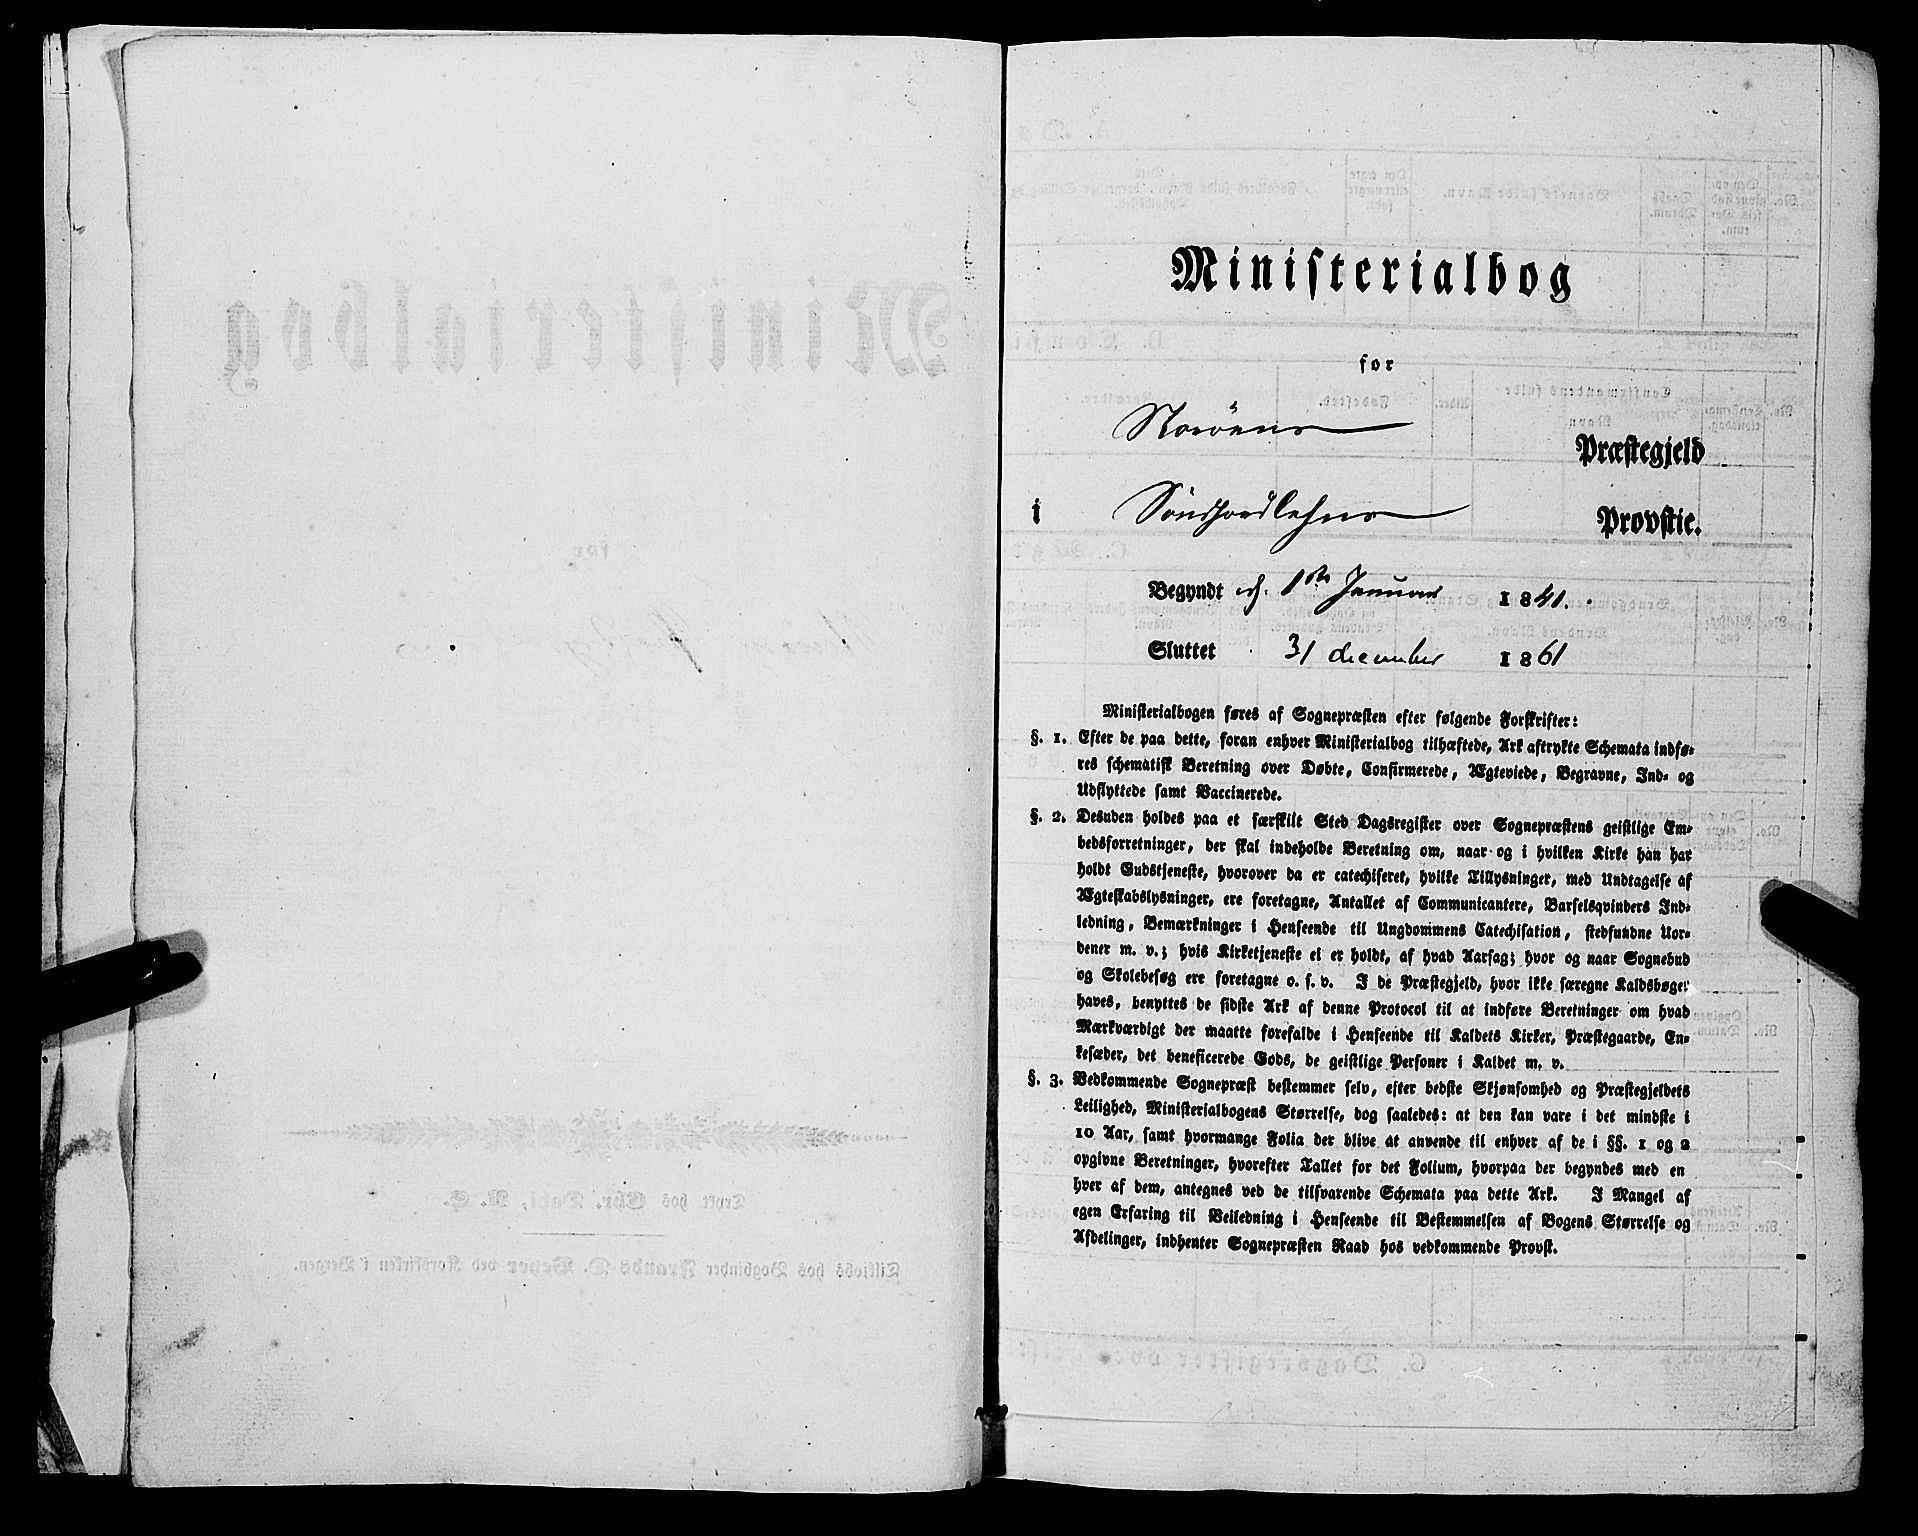 Ministerialbog
for
Storöens Præstegjeld
i Söndhordlehns Provstie.
Begyndt d. 1ste Januar 1841.
Sluttet 31 december 1861
Ministerialbogen føres af Sognepræsten efter følgende Forskrifter:
§. 1. Efter de paa dette, foran enhver Ministerialbog tilhæftede, Ark aftrykte Schemata indfø-
res schematisk Beretning over Døbte, Confirmerede, Ægteviede, Begravne, Ind- og
Udflyttede samt Vaccinerede.
§. 2. Desuden holdes paa et særskilt Sted Dagsregister over Sognepræstens geistlige Em-
bedsforretninger, der skal indeholde Beretning om, naar og i hvilken Kirke han har
holdt Gudstjeneste, hvorover da er catechiseret, hvilke Tillysninger, med Undtagelse af
Ægteskabslysninger, ere foretagne, Antallet af Communicantere, Barselqvinders Ind-
ledning, Bemærkninger i Henseende til Ungdommens Catechisation, stedfundne Uor-
dener m. v.; hvis Kirketjeneste ei er holdt, af hvad Aarsag; hvor og naar Sognebud
og Skolebesøg ere foretagne o. s. v. I de Præstegjeld, hvor ikke særegne Kaldsbøger
haves, benyttes de sidste Ark af denne Protocol til at indføre Beretninger om hvad
Mærkværdigt der maatte forefalde i Henseende til Kaldets Kirker, Præstegaarde, En-
kesæder, det beneficerede Gods, de geistlige Personer i Kaldet m. v.
§. 3. Vedkommende Sognepræst bestemmer selv, efter bedste Skjønsomhed og Præstegjeldets
Leilighed, Ministerialbogens Størrelse, dog saaledes: at den kan vare i det mindste i
10 Aar, samt hvormange Folia der blive at anvende til enhver af de i §§. 1 og 2
opgivne Beretninger, hvorefter Tallet for det Folium, hvorpaa der begyndes med en
hver af dem, antegnes ved de tilsvarende Schemata paa dette Ark. I Mangel af
egen Erfaring til Veiledning i Henseende til Bestemmelsen af Bogens Størrelse og
Afdelinger, indhenter Sognepræsten Raad hos vedkommende Provst.